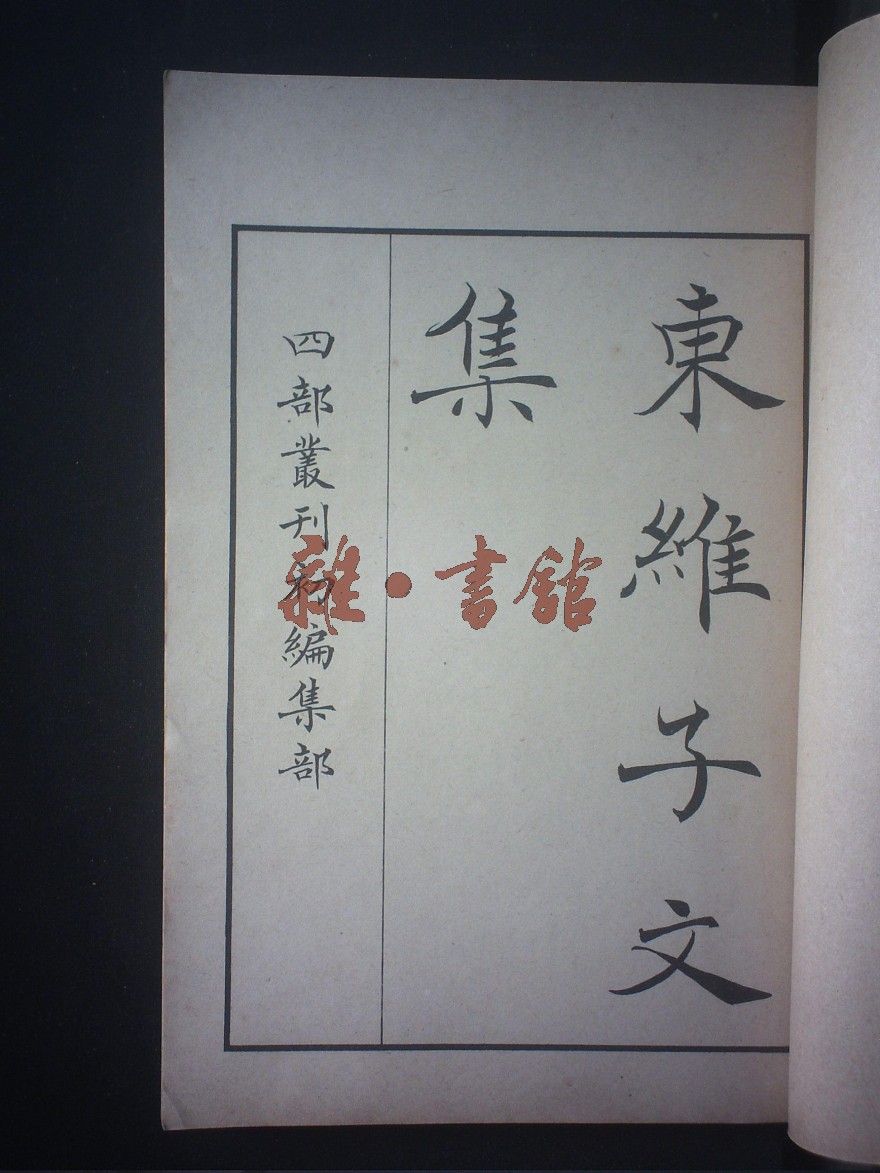 東維子文
集
四部叢刊初編集部
雜·書館